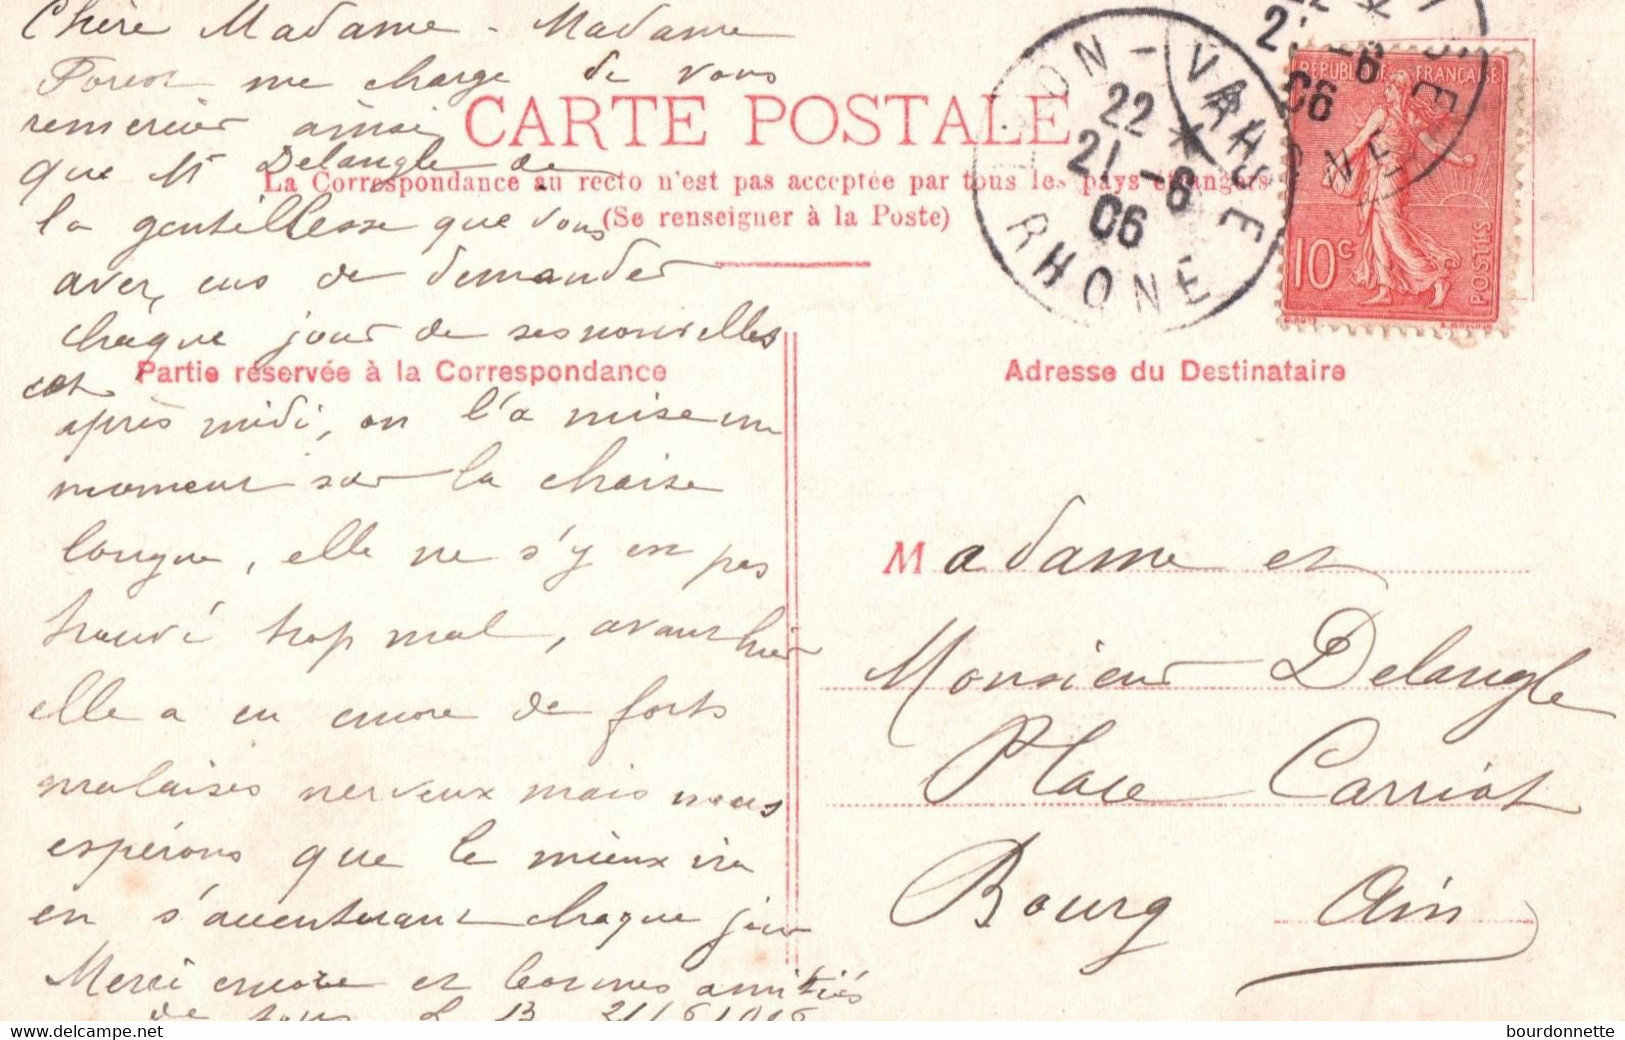 Chère Madame - Madame
Forest me charge de vous
remercier ainsi
que Mr Delangle de
la gentillesse que vous
avez eus de demander
chaque jour de ses nouvelles
cet
après midi, on l'a mise un
moment sur la chaise
longue, elle ne s'y en pas
trouvé trop mal, avant hier
elle a eu encore de forts
malaises nerveux mais nous
espérons que le mieux ira
en s'accenturant chaque jour
Merci encore et bonnes amitiés
de tous L B 21/6 1906
CARTE POSTALE
La Correspondance au recto n'est pas acceptée par tous les pays étrangers
(Se renseigner à la Poste)
Partie réservée à la Correspondance
Adresse du Destinataire
LYON - VAISE
22 *
21 -6
06
RHONE
RÉPUBLIQUE FRANÇAISE
10c
POSTES
Madame et
Monsieur Delangle
Place Carriat
Bourg Ain
delcampe.net
bourdonnette